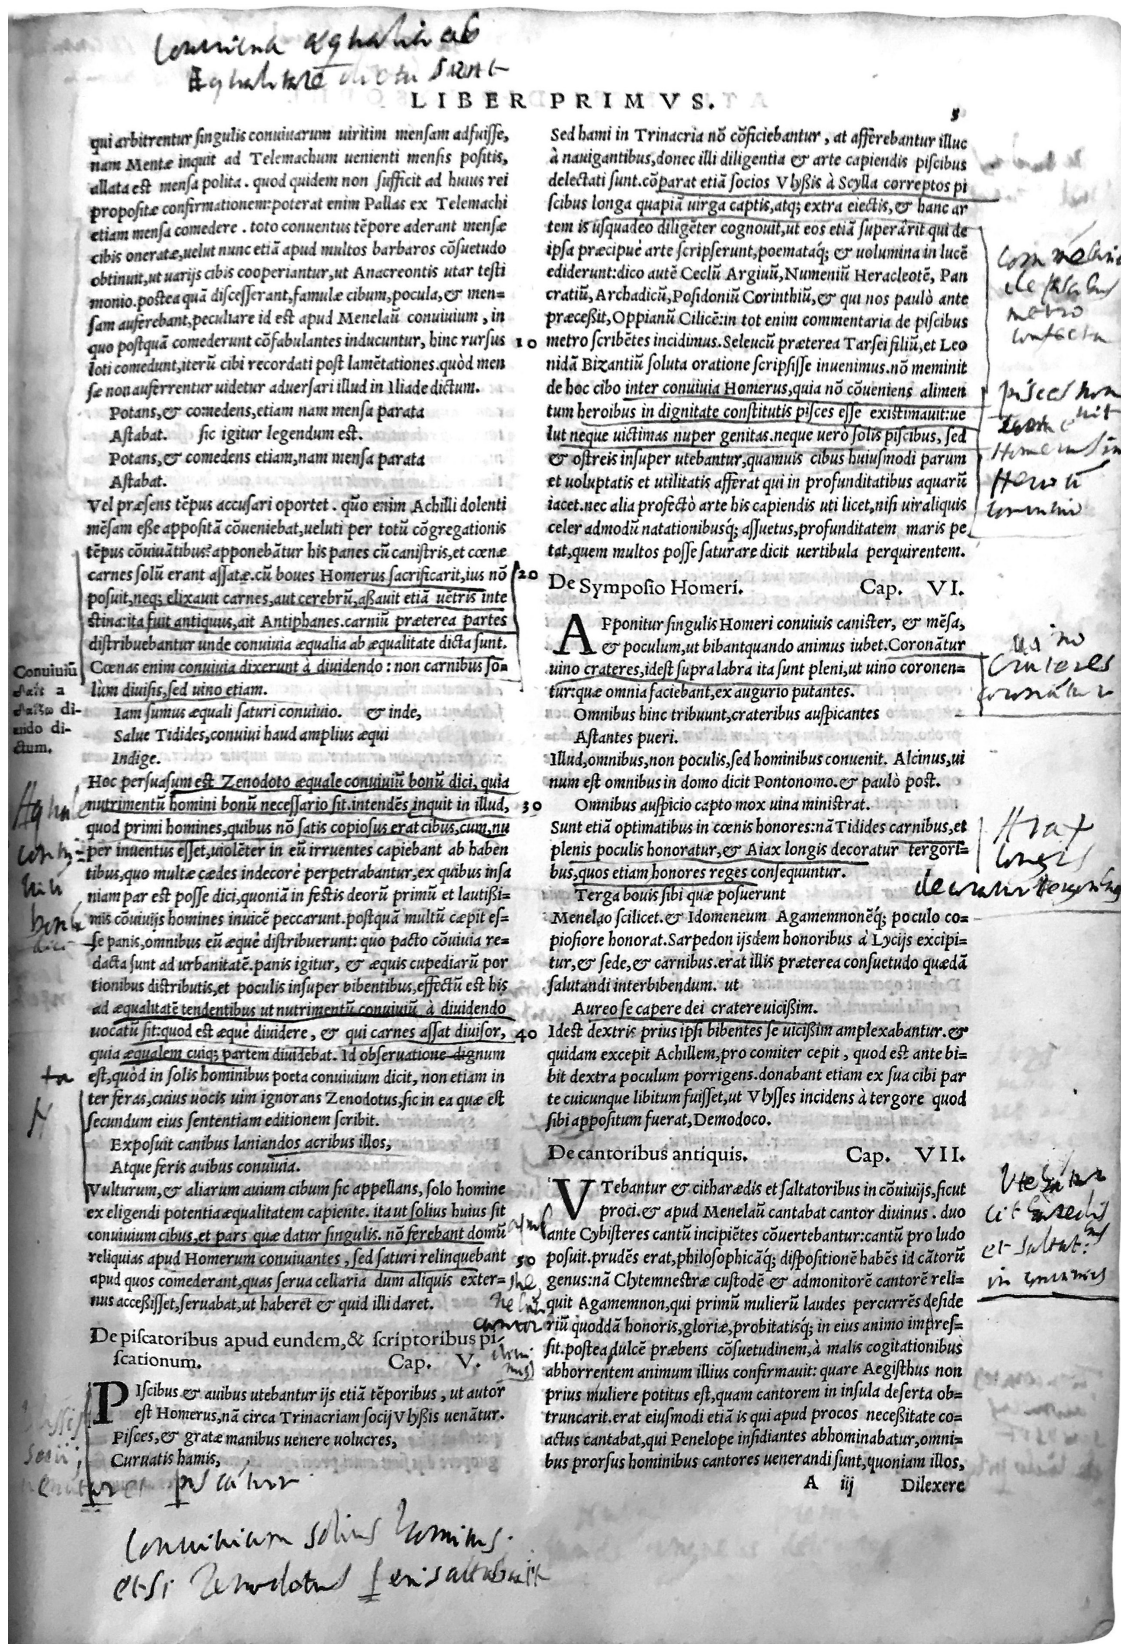 LIBER PRIMVS.
5
qui arbitrentur singulis conuiuarum uiritim mensam adfuisse,
nam Mentæ inquit ad Telemachum uenienti mensis positis,
allata est mensa polita. quod quidem non sufficit ad huius rei
propositæ confirmationem: poterat enim Pallas ex Telemachi
etiam mensa comedere. toto conuentus tẽpore aderant mensæ
cibis oneratæ, uelut nunc etiã apud multos barbaros cõsuetudo
obtinuit, ut uarijs cibis cooperiantur, ut Anacreontis utar testi
monio. postea quã discesserant, famulæ cibum, pocula, & men=
sam auferebant, peculiare id est apud Menelaũ conuiuium, in
quo postquã comederunt cõfabulantes inducuntur, hinc rursus
10
loti comedunt, iterũ cibi recordati post lamẽtationes. quòd men
sæ non auferrentur uidetur aduersari illud in Iliade dictum.
Potans, & comedens, etiam nam mensa parata
Astabat. sic igitur legendum est.
Potans, & comedens etiam, nam mensa parata
Astabat.
Vel præsens tẽpus accusari oportet. quo enim Achilli dolenti
mẽsam esse appositã cõueniebat, ueluti per totũ cõgregationis
tẽpus cõuiuãtibus? apponebãtur his panes cũ canistris, et cœnæ
carnes solũ erant assatæ. cũ boues Homerus sacrificarit, ius nõ
20
posuit, neq; elixauit carnes, aut cerebrũ, aßauit etiã uẽtris inte
stina: ita fuit antiquius, ait Antiphanes. carniũ præterea partes
distribuebantur unde conuiuia æqualia ab æqualitate dicta sunt.
Cœnas enim conuiuia dixerunt à diuidendo: non carnibus so=
lùm diuisis, sed uino etiam.
Conuiuiũ
δαὶς a
δαίω di-
uido di-
ctum.
Iam sumus æquali saturi conuiuio. & inde,
Salue Tidides, conuiui haud amplius æqui
Indige.
Hoc persuasum est Zenodoto æquale conuiuiũ bonũ dici, quia
nutrimentũ homini bonũ necessario sit. intendẽs inquit in illud,
30
quod primi homines, quibus nõ satis copiosus erat cibus, cum nu
per inuentus esset, uiolẽter in eũ irruentes capiebant ab haben
tibus, quo multæ cædes indecorè perpetrabantur, ex quibus insa
niam par est posse dici, quoniã in festis deorũ primũ et lautißi=
mis cõuiuijs homines inuicẽ peccarunt. postquã multũ cæpit es=
se panis, omnibus eũ æquè distribuerunt: quo pacto cõuiuia re=
dacta sunt ad urbanitatẽ. panis igitur, & æquis cupediarũ por
tionibus distributis, et poculis insuper bibentibus, effectũ est his
ad æqualitatẽ tendentibus ut nutrimentũ conuiuiũ à diuidendo
uocatũ sit: quod est æquè diuidere, & qui carnes assat diuisor,
40
quia æqualem cuiq; partem diuidebat. Id obseruatione dignum
est, quòd in solis hominibus poeta conuiuium dicit, non etiam in
ter feras, cuius uocis uim ignorans Zenodotus, sic in ea quæ est
secundum eius sententiam editionem scribit.
Exposuit canibus laniandos acribus illos,
Atque feris auibus conuiuia.
Vulturum, & aliarum auium cibum sic appellans, solo homine
ex eligendi potentia æqualitatem capiente. ita ut solius huius sit
conuiuium cibus, et pars quæ datur singulis. nõ ferebant domũ
reliquias apud Homerum conuiuantes, sed saturi relinquebant
50
apud quos comederant, quas serua cellaria dum aliquis exter=
nus acceßisset, seruabat, ut haberet & quid illi daret.
De piscatoribus apud eundem, & scriptoribus pi-
scationum. Cap. V.
PIscibus & auibus utebantur ijs etiã tẽporibus, ut autor
est Homerus, nã circa Trinacriam socij Vlyßis uenãtur.
Pisces, & gratæ manibus uenere uolucres,
Curuatis hamis,
Sed hami in Trinacria nõ cõficiebantur, at afferebantur illuc
à nauigantibus, donec illi diligentia & arte capiendis piscibus
delectati sunt. cõparat etiã socios Vlyßis à Scylla correptos pi
scibus longa quapiã uirga captis, atq; extra eiectis, & hanc ar
tem is usquadeo diligẽter cognouit, ut eos etiã superârit qui de
ipsa præcipuè arte scripserunt, poemataq́; & uolumina in lucẽ
ediderunt: dico autẽ Ceclũ Argiuũ, Numeniũ Heracleotẽ, Pan
cratiũ, Archadicũ, Posidoniũ Corinthiũ, & qui nos paulò ante
præceßit, Oppianũ Cilicẽ: in tot enim commentaria de piscibus
metro scribẽtes incidimus. Seleucũ præterea Tarsei filiũ, et Leo
nidã Bizantiũ soluta oratione scripsisse inuenimus. nõ meminit
de hoc cibo inter conuiuia Homerus, quia nõ cõueniens alimen
tum heroibus in dignitate constitutis pisces esse existimauit: ue
lut neque uictimas nuper genitas. neque uerò solis piscibus, sed
& ostreis insuper utebantur, quamuis cibus huiusmodi parum
et uoluptatis et utilitatis afferat qui in profunditatibus aquarũ
iacet. nec alia profectò arte his capiendis uti licet, nisi uir aliquis
celer admodũ natationibusq́; assuetus, profunditatem maris pe
tat, quem multos posse saturare dicit uertibula perquirentem.
De Symposio Homeri. Cap. VI.
APponitur singulis Homeri conuiuis canister, & mẽsa,
& poculum, ut bibant quando animus iubet. Coronãtur
uino crateres, idest supra labra ita sunt pleni, ut uino coronen=
tur: quæ omnia faciebant, ex augurio putantes.
Omnibus hinc tribuunt, crateribus auspicantes
Astantes pueri.
Illud, omnibus, non poculis, sed hominibus conuenit. Alcinus, ui
num est omnibus in domo dicit Pontonomo. & paulò post.
Omnibus auspicio capto mox uina ministrat.
Sunt etiã optimatibus in cœnis honores: nã Tidides carnibus, et
plenis poculis honoratur, & Aiax longis decoratur tergori=
bus, quos etiam honores reges consequuntur.
Terga bouis sibi quæ posuerunt
Menelao scilicet. & Idomeneum Agamemnonẽq́; poculo co=
piosiore honorat. Sarpedon ijsdem honoribus à Lycijs excipi=
tur, & sede, & carnibus. erat illis præterea consuetudo quædã
salutandi inter bibendum. ut
Aureo se capere dei cratere uicißim.
Idest dextris prius ipsi bibentes se uicißim amplexabantur. &
quidam excepit Achillem, pro comiter cepit, quod est ante bi=
bit dextra poculum porrigens. donabant etiam ex sua cibi par
te cuicunque libitum fuisset, ut Vlysses incidens à tergore quod
sibi appositum fuerat, Demodoco.
De cantoribus antiquis. Cap. VII.
VTebantur & citharædis et saltatoribus in cõuiuijs, sicut
proci. & apud Menelaũ cantabat cantor diuinus. duo
ante Cybisteres cantũ incipiẽtes cõuertebantur: cantũ pro ludo
posuit. prudẽs erat, philosophicãq́; dispositionẽ habẽs id cãtorũ
genus: nã Clytemnestræ custodẽ & admonitorẽ cantorẽ reli=
quit Agamemnon, qui primũ mulierũ laudes percurrẽs deside
riũ quoddã honoris, gloriæ, probitatisq́; in eius animo impres=
sit. postea dulcẽ præbens cõsuetudinem, à malis cogitationibus
abhorrentem animum illius confirmauit: quare Aegisthus non
prius muliere potitus est, quam cantorem in insula deserta ob=
truncarit. erat eiusmodi etiã is qui apud procos neceßitate co=
actus cantabat, qui Penelope insidiantes abhominabatur, omni=
bus prorsus hominibus cantores uenerandi sunt, quoniam illos,
A iij Dilexere
pisces non
Homerus in
Heroũ
conuiuio
uino
Crateres
coronãtur
Aiax
longis
et saltat
in conuiuiis
piscãtur
Conuiuium solius hominis.
etsi Zenodotus